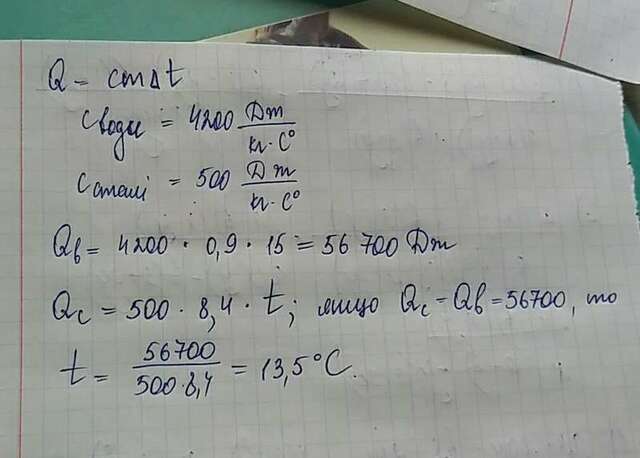 Q = cmΔt
Cводи = 4200 Дж/кг·C°
Cсталі = 500 Дж/кг·C°
Qв = 4200 · 0,9 · 15 = 56 700 Дж
Qc = 500 · 8,4 · t; якщо Qc = Qв = 56700, то
t = 56700/500·8,4 = 13,5°C.